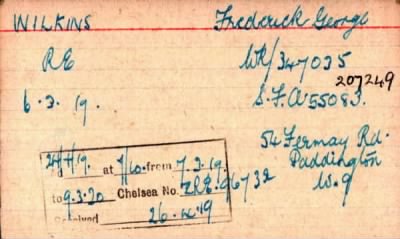 WILKINS Frederick George
RE WR/347035
207249
6.3.19. S.F.A 55083.
54 Fermay Rd.
Paddington
W.9
at 7/10. from 7.3.19.
to 9.3.20 Chelsea No. ZRE.96732
26.IX.19